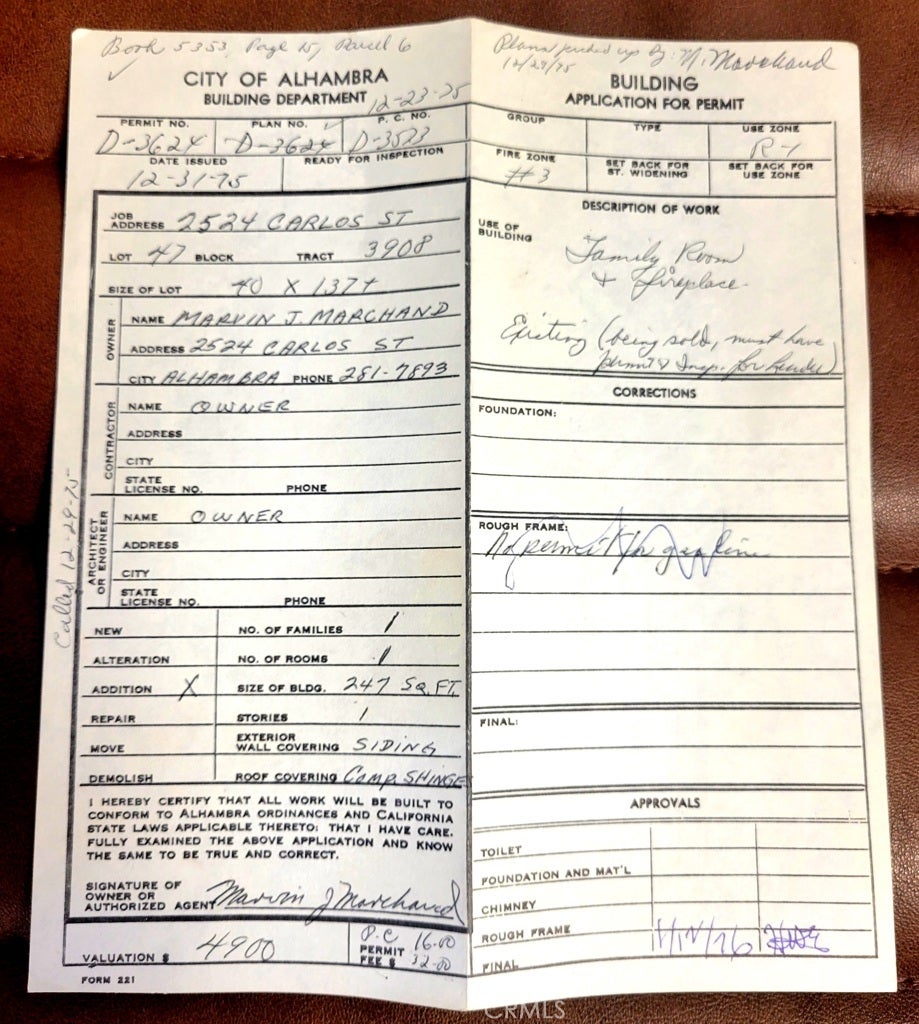 Book 5353, Page 15, Parcel 6
CITY OF ALHAMBRA
BUILDING DEPARTMENT
12-23-75
PERMIT NO. PLAN NO. P. C. NO.
D-3624 D-3624 D-3523
DATE ISSUED READY FOR INSPECTION
12-31-75
JOB ADDRESS 2524 CARLOS ST
LOT 47 BLOCK TRACT 3908
SIZE OF LOT 40 X 137+
OWNER
NAME MARVIN J. MARCHAND
ADDRESS 2524 CARLOS ST
CITY ALHAMBRA PHONE 281-7893
CONTRACTOR
NAME OWNER
ADDRESS
CITY
STATE LICENSE NO. PHONE
ARCHITECT OR ENGINEER
NAME OWNER
ADDRESS
CITY
STATE LICENSE NO. PHONE
Called 12-29-75
NEW NO. OF FAMILIES 1
ALTERATION NO. OF ROOMS 1
ADDITION X SIZE OF BLDG. 247 SQ. FT.
REPAIR STORIES 1
MOVE EXTERIOR WALL COVERING SIDING
DEMOLISH ROOF COVERING COMP. SHINGE
I HEREBY CERTIFY THAT ALL WORK WILL BE BUILT TO
CONFORM TO ALHAMBRA ORDINANCES AND CALIFORNIA
STATE LAWS APPLICABLE THERETO: THAT I HAVE CARE.
FULLY EXAMINED THE ABOVE APPLICATION AND KNOW
THE SAME TO BE TRUE AND CORRECT.
SIGNATURE OF
OWNER OR
AUTHORIZED AGENT Marvin J Marchand
VALUATION $ 4900 P.C. 16.00
PERMIT FEE $ 32.00
FORM 221
Plans picked up by: M. Marchand
12/29/75
BUILDING
APPLICATION FOR PERMIT
GROUP TYPE USE ZONE
R-1
FIRE ZONE SET BACK FOR ST. WIDENING SET BACK FOR USE ZONE
#3
DESCRIPTION OF WORK
USE OF BUILDING
Family Room
& Fireplace
Existing (being sold, must have
permit & Insp. for
CORRECTIONS
FOUNDATION:
ROUGH FRAME:
No permit for gas line
FINAL:
APPROVALS
TOILET
FOUNDATION AND MAT'L
CHIMNEY
ROUGH FRAME
FINAL
CRMLS